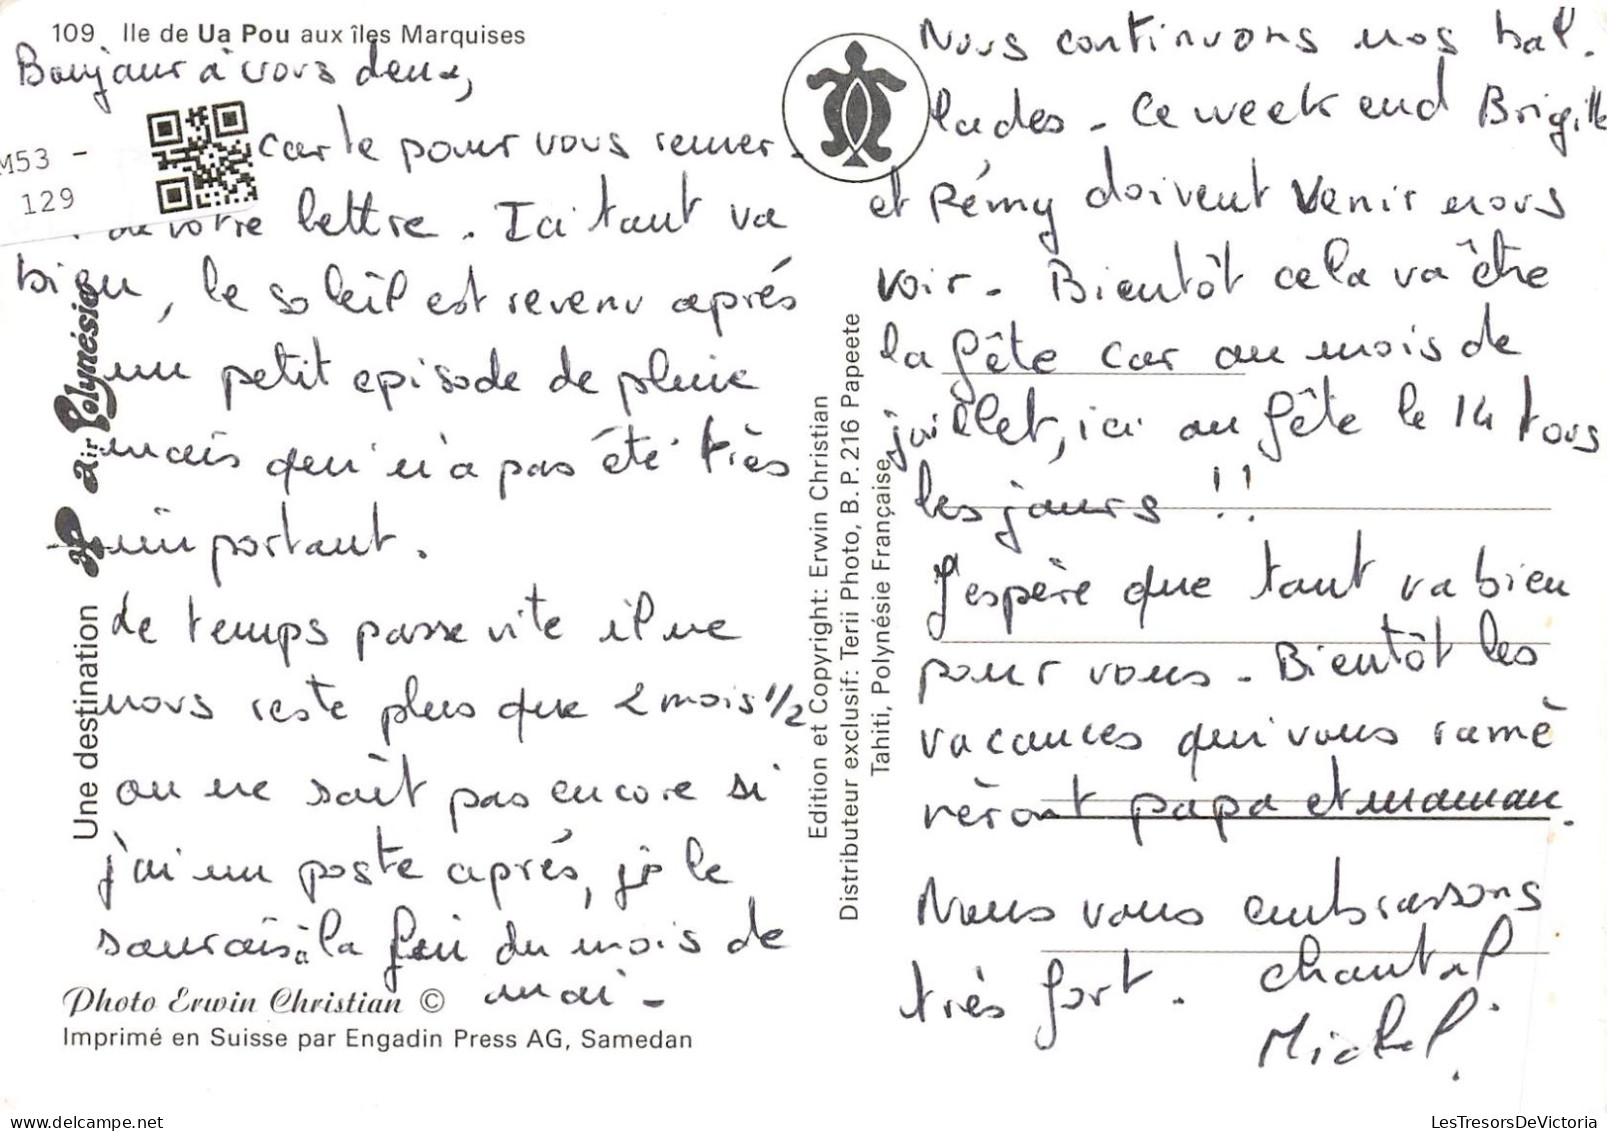 109 Ile de Ua Pou aux îles Marquises
Bonjour à vous deux,
M53 -
129
carte pour vous remer-
de votre lettre. Ici tout va
bien, le soleil est revenu après
un petit episode de pluie
mais qui n'a pas été très
important.
Le temps passe vite il ne
nous reste plus que 2 mois 1/2
on ne sait pas encore si
j'ai un poste après, je le
saurais à la fin du mois de
mai -
Photo Erwin Christian ©
Imprimé en Suisse par Engadin Press AG, Samedan
Une destination air Polynésie
Edition et Copyright: Erwin Christian
Distributeur exclusif: Terii Photo, B.P. 216 Papeete
Tahiti, Polynésie Française
Nous continuons nos bal-
lades - Ce week end Brigitte
et Rémy doivent venir nous
voir. Bientôt cela va être
la fête car au mois de
juillet, ici on fête le 14 tous
les jours !!
J'espère que tout va bien
pour vous - Bientôt les
vacances qui vous ramè
nèront papa et maman.
Nous vous embrassons
très fort. Chantal
Michel.
LesTresorsDeVictoria